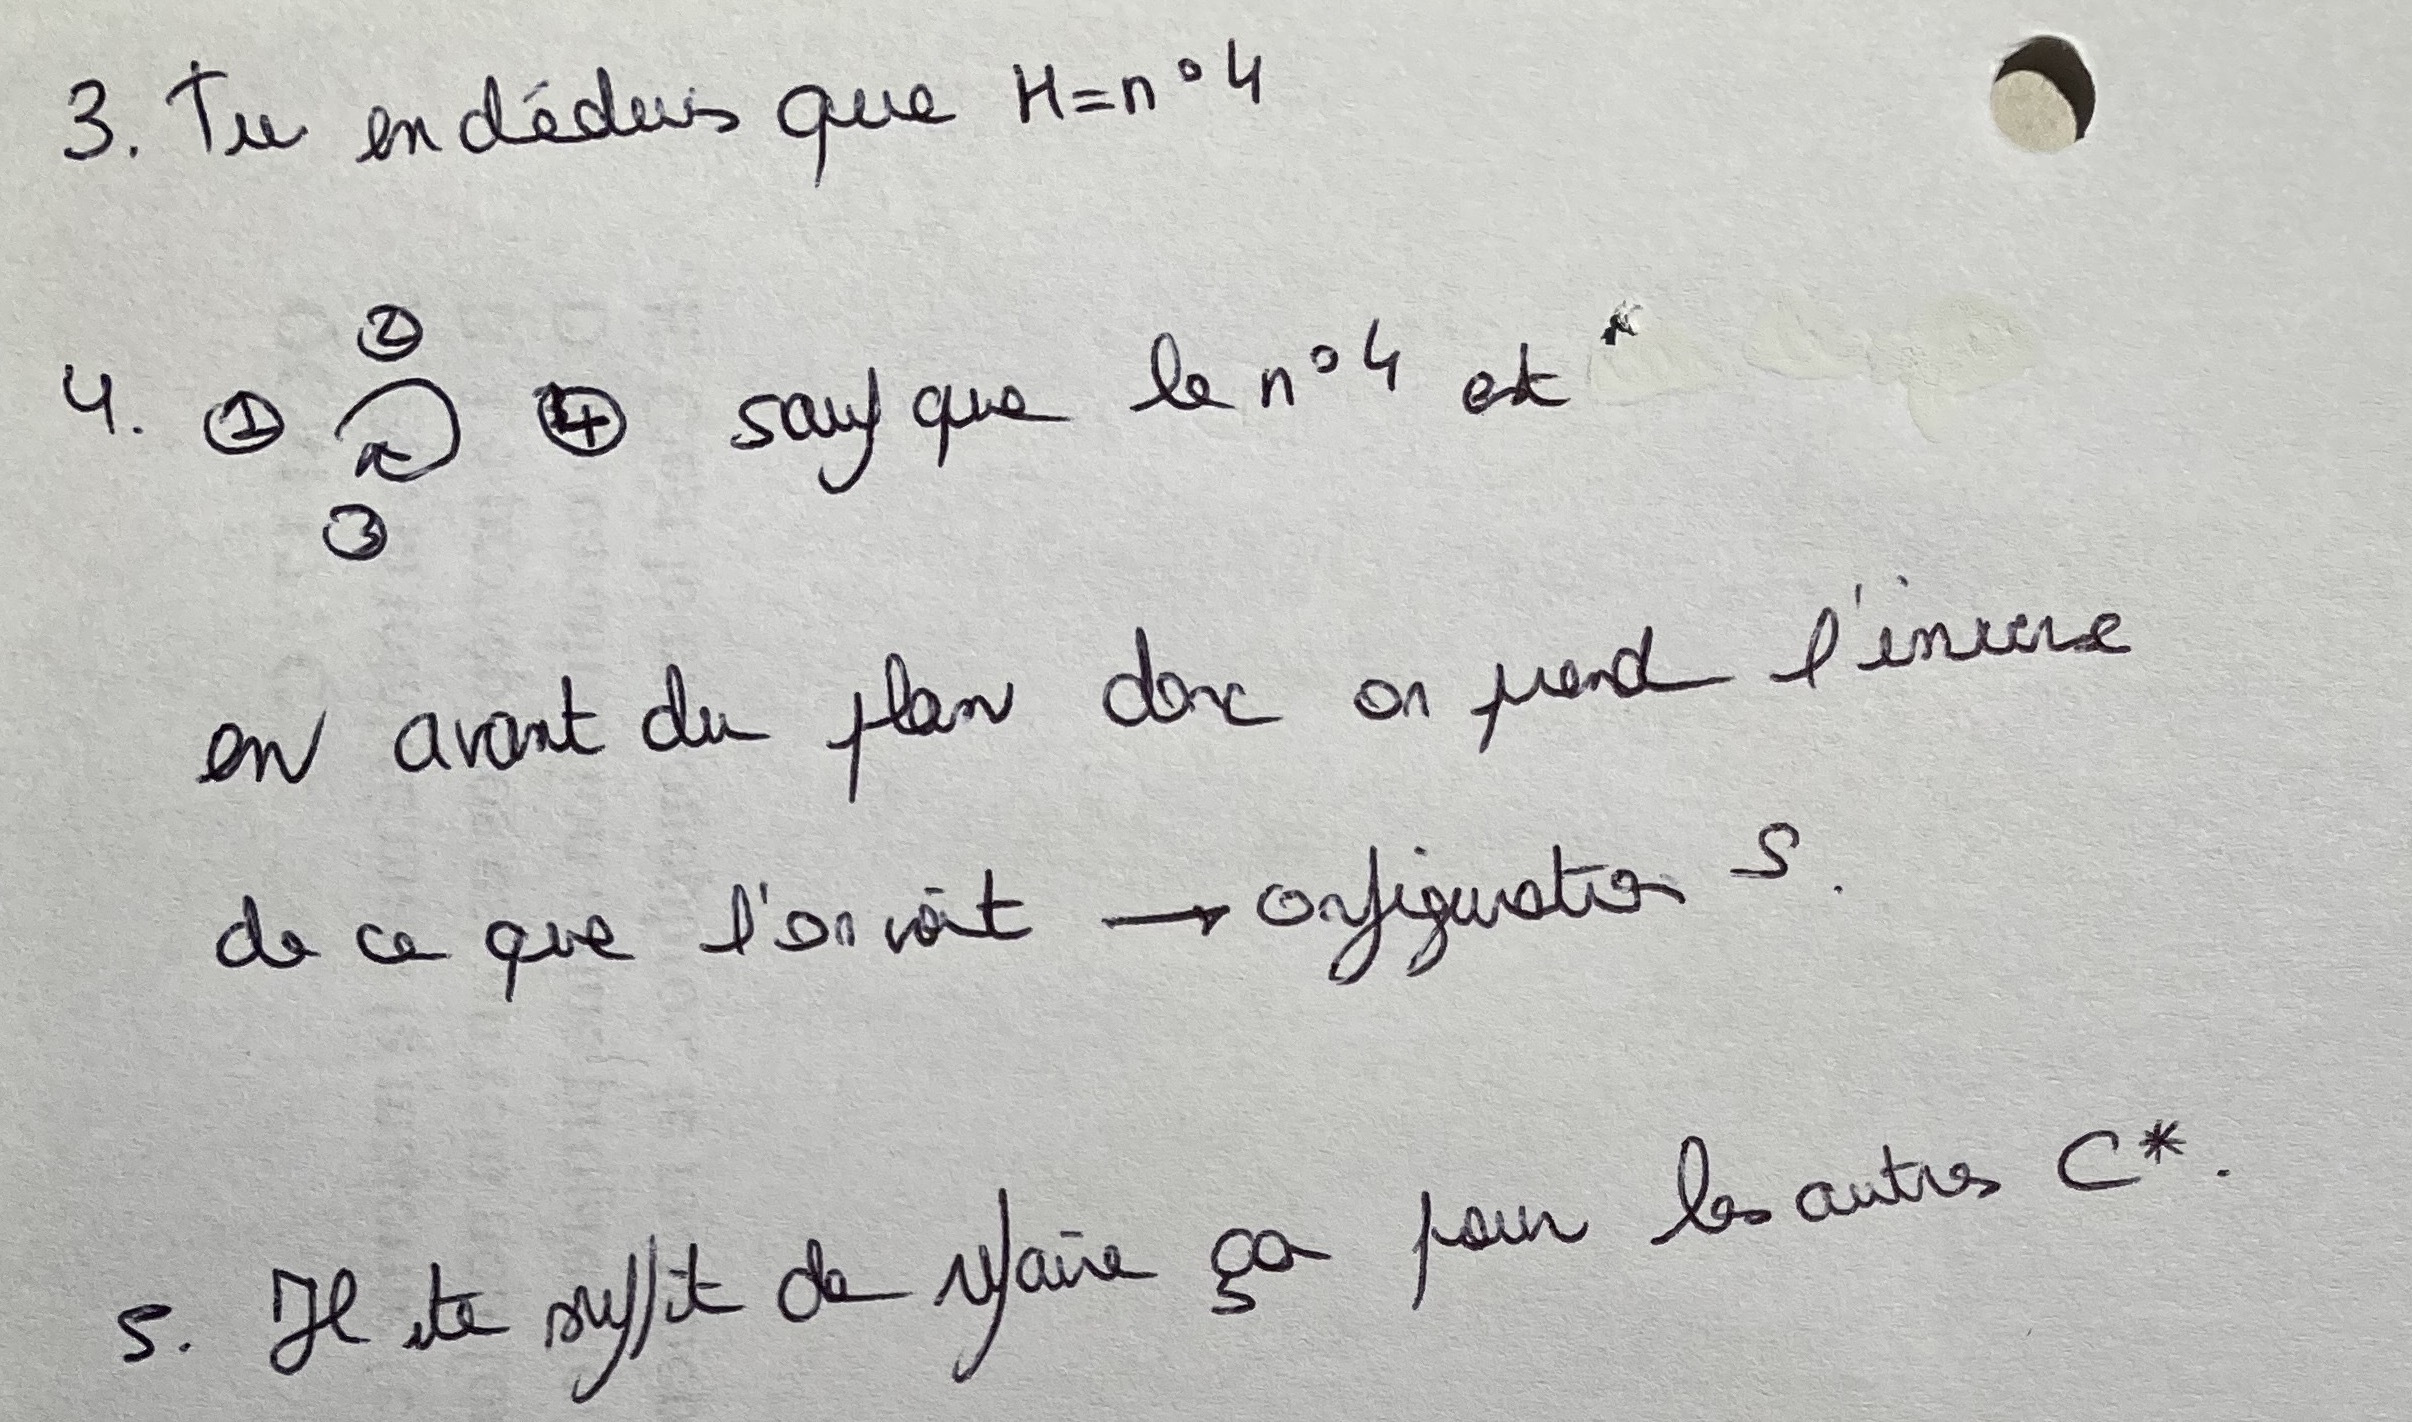 3. Tu en déduis que H=n°4
②
4. ① ④ sauf que le n°4 est
③
en avant du plan donc on prend l'inverse
de ce que l'on voit → configuration S.
5. Il te suffit de refaire ça pour les autres C*.